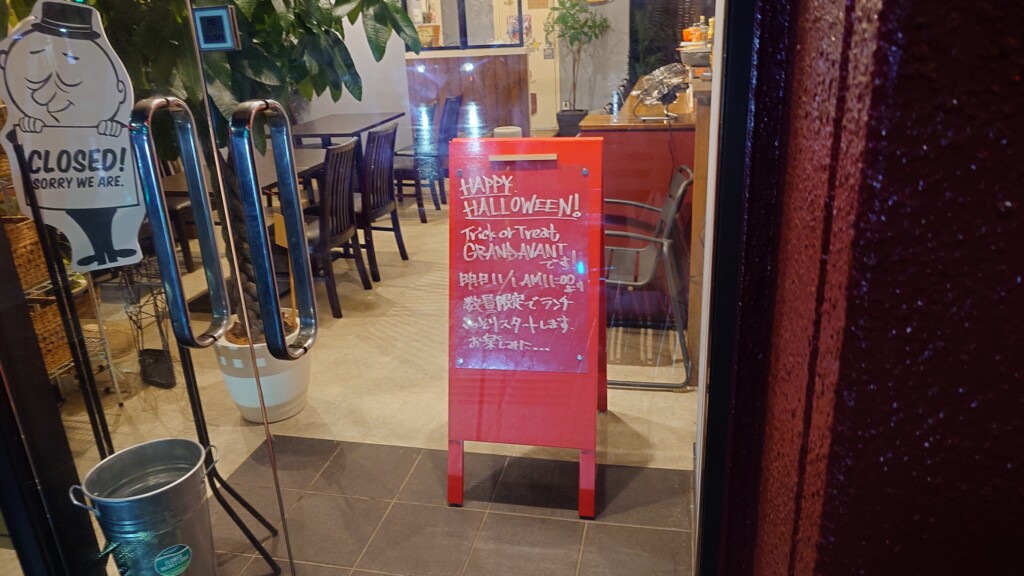 CLOSED!
SORRY WE ARE.
HAPPY
HALLOWEEN!
Trick or Treat
GRANDAVANT
です!
明日11/1 AM11:00より
数量限定でランチ
スタートします。
お楽しみに...